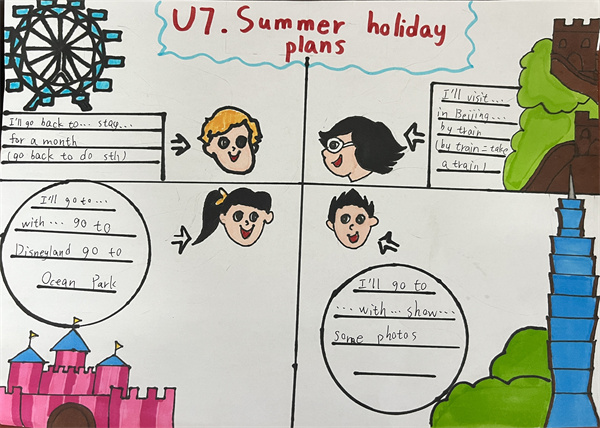 U7. Summer holiday
plans
I'll go back to... stay...
for a month
(go back to do sth)
I'll visit...
in Beijing...
by train
(by train = take
a train)
I'll go to...
with... go to
Disneyland go to
Ocean Park
I'll go to
... with... show...
some photos